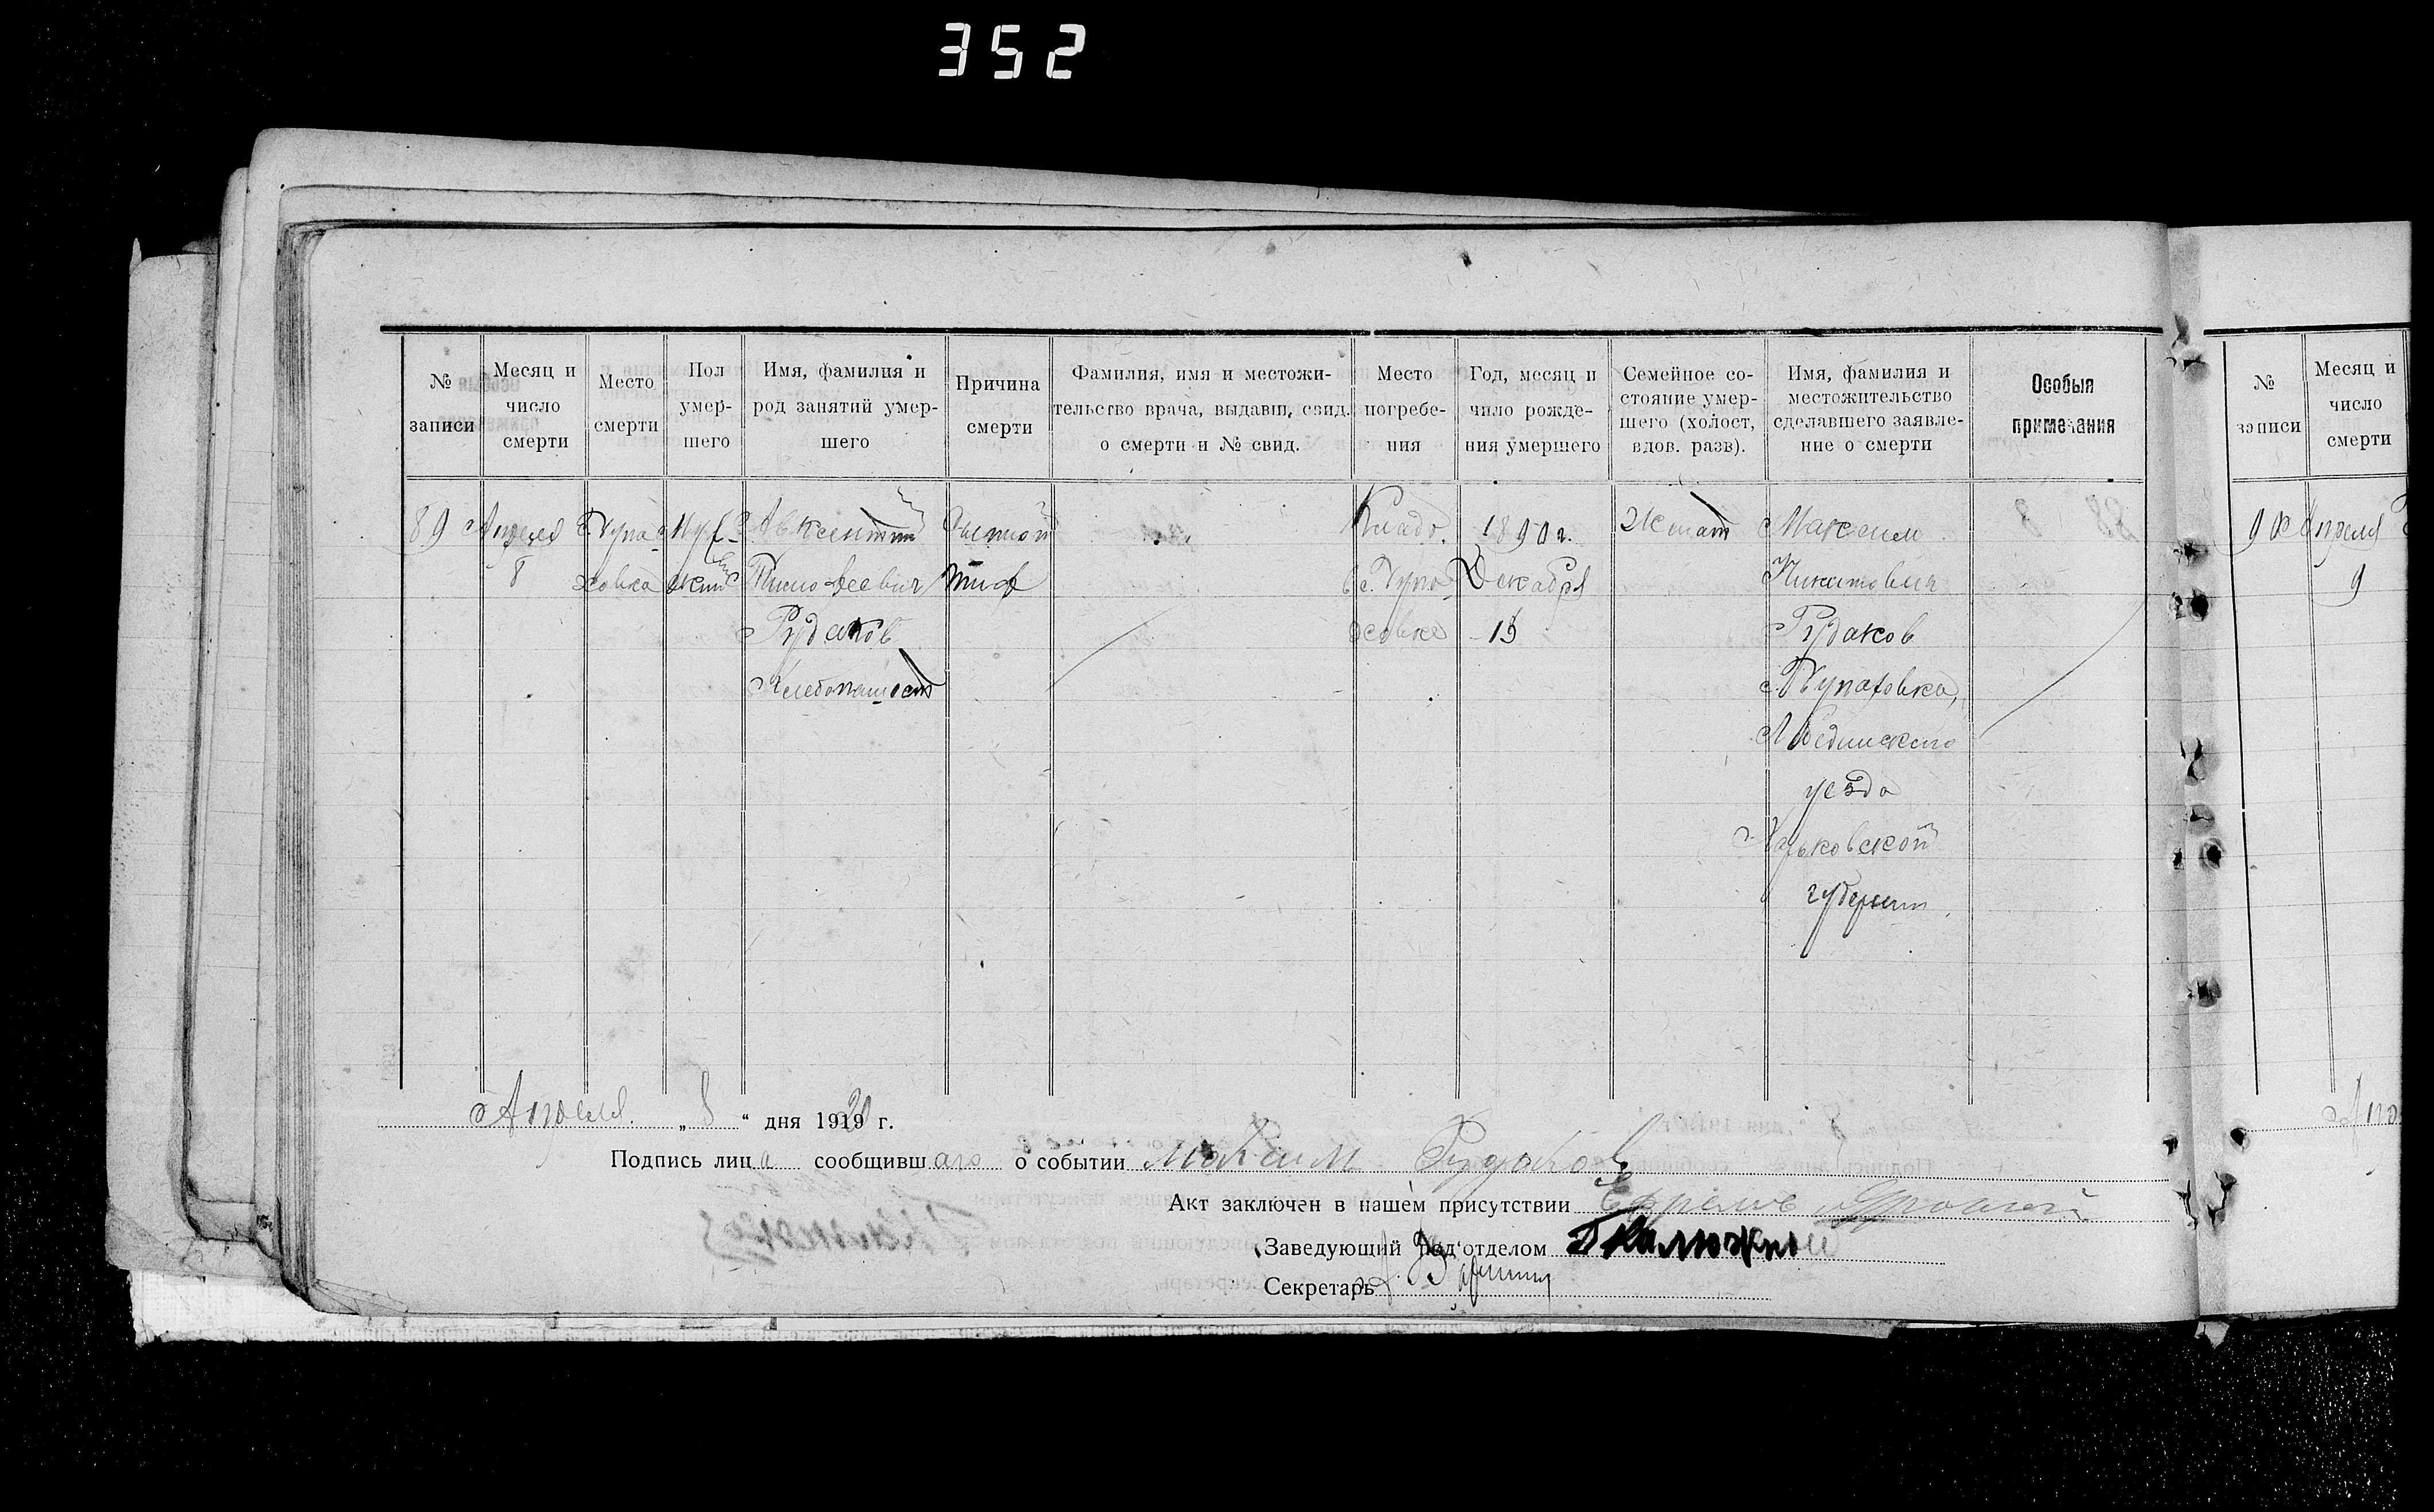 352
№ записи
Месяц и число смерти
Место смерти
Пол умер-шего
Имя, фамилия и род занятий умер-шего
Причина смерти
Фамилия, имя и местожи-тельство врача, выдавш. свид. о смерти и № свид.
Место погребе-ния
Год, месяц и число рожде-ния умершего
Семейное со-стояние умер-шего (холост, вдов. разв).
Имя, фамилия и местожительство сделавшего заявле-ние о смерти
Особыя примечания
№ записи
Месяц и число смерти
89
Апреля
8
с. Тупа-
ховка
Муж-
ский
Авксентий
Тимофеевич
Рудаков
Хлебопашест
Сыпной
тиф
Кладб.
в с. Тупа-
ховке
1890 г.
Декабря
15
Женат
Максим
Никитович
Рудаков
с. Тупаховка,
Лебединского
уезда
Харьковской
губернии
90
Апреля
9
Апреля „ 8 “ дня 1920 г.
Подпись лица сообщившаго о событии Максим Рудаков
Акт заключен в нашем присутствии Ефрем
Заведующий подотделом Калюжный
Секретарь